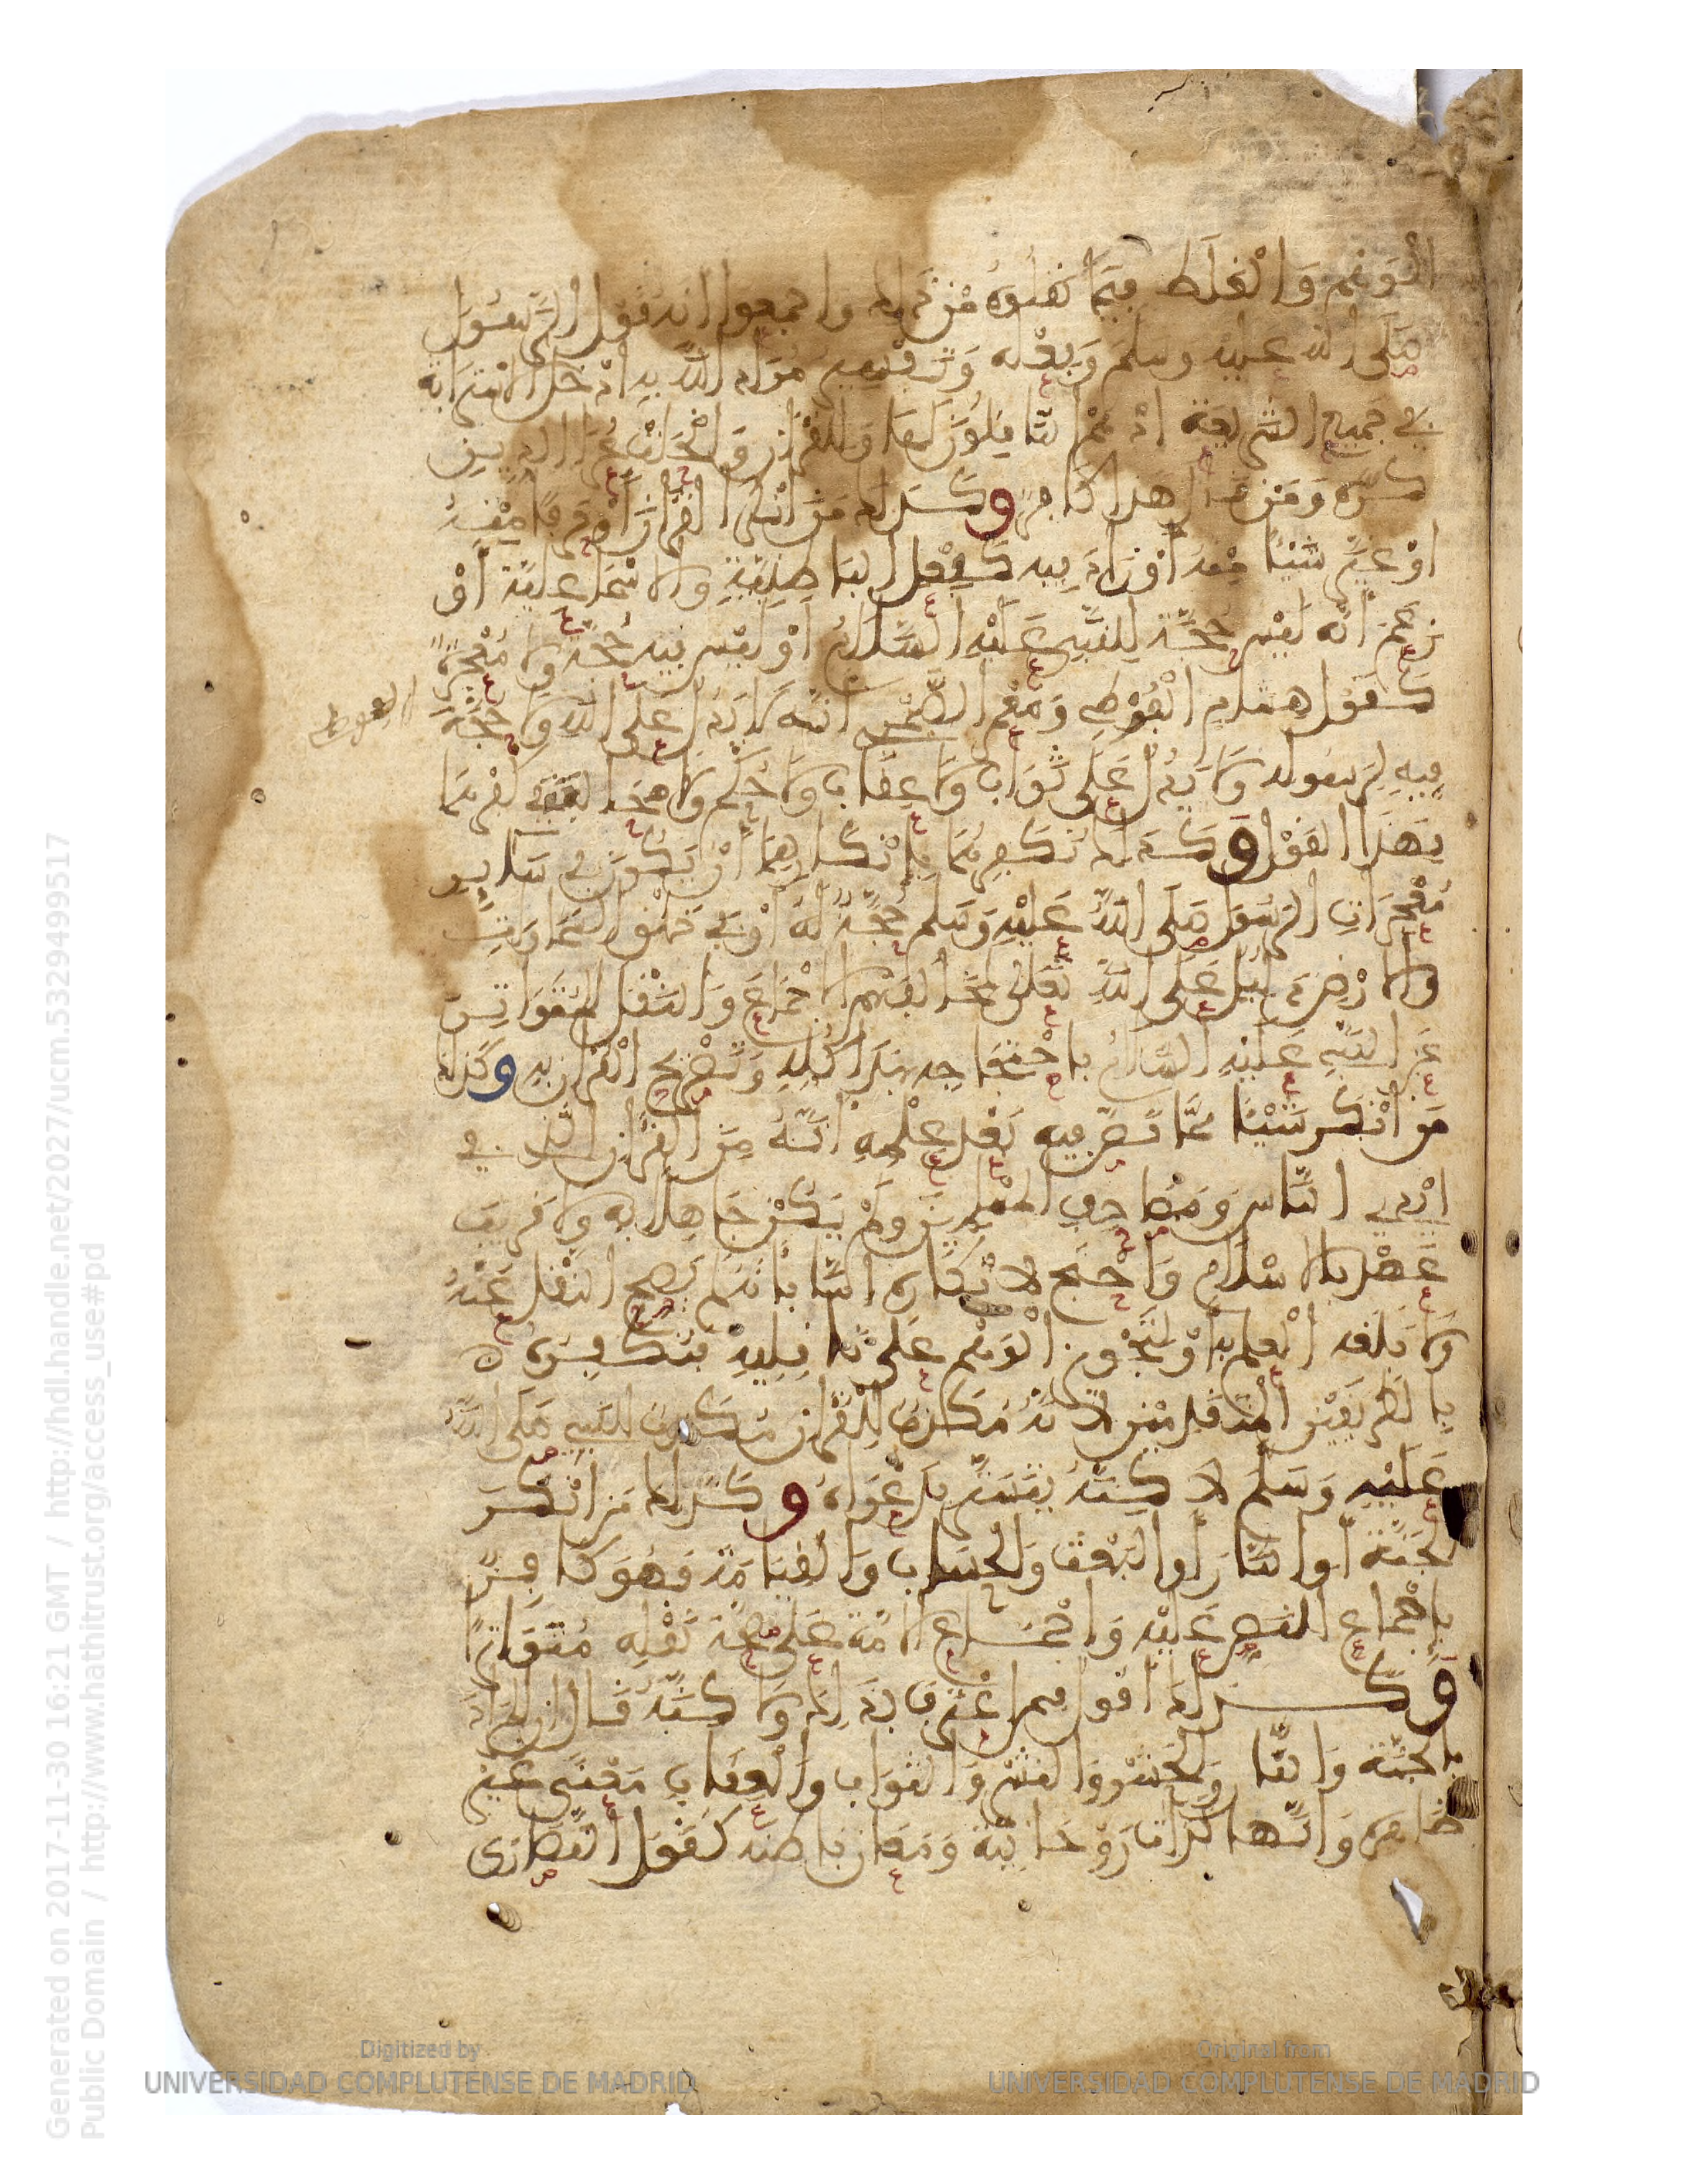 الْوَهْم وَالْغَلَط فِيمَا نَقَلُوهُ مِنْ ذلك واجمعوا انه قول الرسُول
صَلى الله عليه وسلم وَفِعْله وَتفسِيره مُرَاد اللهِ به ادْخَل الاسْتِرَابة
في جَميع الشريعة اذ هُمُ النَّاقِلُونَ لهَا وَللقُرْان وَانْحَلتْ عُرَا الدين
كَرّه وَمَنْ قال هذا كافر وكَذلك مَن انكر الْقُرْانَ اوْ حَرْفًا مِنْهُ
اوْ غيّر شَيْئًا مِنهُ اوْ زَادَ فِيه كَفِعْل الباطِنِيّةِ والاسْمَاعِلِيّة اوْ
زعَمَ انّه لَيْس حُجّة لِلنَّبِي عَلَيْهِ السَّلامُ اوْ ليْس فِيه حُجّة وَلا مُعْجزَةٌ
كَقَوْل هشام الْفُوطِي وَمَعْمَر الصَّيْمري انّه لا يَدُل عَلى الله وَلا حُجّةَ
الفوطي
فِيهِ لِرَسُوله وَلا يَدُل عَلى ثَوَاب وَلا عِقَاب وَلا حُكْم وَلا محَالة في كفرهمَا
بهَذَا القَوْل وكَذلك نُكَفِرهُمَا بِإنْكارِهِمَا انْ يَكُونَ في سَايِر
مُعْجزَاتِ الرسُول صَلى اللهُ عَليْهِ وَسَلم حُجّةٌ لهُ اوْ في خَلْق السَّمَاوَاتِ
وَالارْضِ دَلِيل عَلى اللهِ لِمُخَالَفَتِهِم الاجْمَاعَ وَالنَّقْل المُتَوَاتِر
عَن النَّبِي عَليْهِ السَّلامُ باحْتجَاجِه بهَذَا كُلهِ وَتَصْريحِ الْقُرْان بهِ وكَذلك
مَن انْكر شَيْئًا مِمَّا نَصّ فِيه بَعْد عِلْمِهِ انّهُ مِنَ القُرْان الّذي في
ايْدِي النَّاس وَمَصَاحِفِ المسْلمين وَلَمْ يَكُنْ جَاهِلاً بِهِ وَلا قَرِيبَ
عَهْد بالاسْلامِ وَاحْتَجّ لانْكَارِه إِمَّا بِأنهُ لَم يَصِحّ النقْل عِنْدَهُ
وَلا بَلَغه الْعِلم به اوْ لِتَجْويزِ الْوَهْم عَلَى نَاقِلِيهِ فَنُكَفِرُه
بالطرِيقَيْن المُتَقَدِّمَيْنِ لانهُ مُكَذِّبٌ لِلْقُرْان مُكَذِّبٌ للنَّبِي صَلى اللهُ
عَلَيْهِ وَسَلم لاكنهُ تَسَتَّرَ بِدَعْوَاهُ وكَذلك مَن انْكَرَ
الجَنّة او النّارَ او البَعْثَ وَالحسَابَ وَالْقِيَامَةَ فَهُوَ كَافِرٌ
بِإجْمَاعِ للنّص عَليْه وَاجْمَاعِ الامّة عَلى صِحّة نَقْلِه مُتَوَاتِرًا
وَكَذلك مَن اعْتَرفَ بِذَلك وَلكنّهُ قَال ان المُرَادَ
بالجَنّة وَالنَّار وَالحَشْر وَالنشْر وَالثوَاب وَالْعِقَاب مَعْنًى غَيْر
ظَاهِره وَانّهَا لَذّات رَوْحَانِيّة وَمَعَان بَاطنَة كَقَوْل النَّصَارَى
Generated on 2017-11-30 16:21 GMT / http://hdl.handle.net/2027/ucm.5329499517
Public Domain / http://www.hathitrust.org/access_use#pd
Digitized by
UNIVERSIDAD COMPLUTENSE DE MADRID
Original from
UNIVERSIDAD COMPLUTENSE DE MADRID